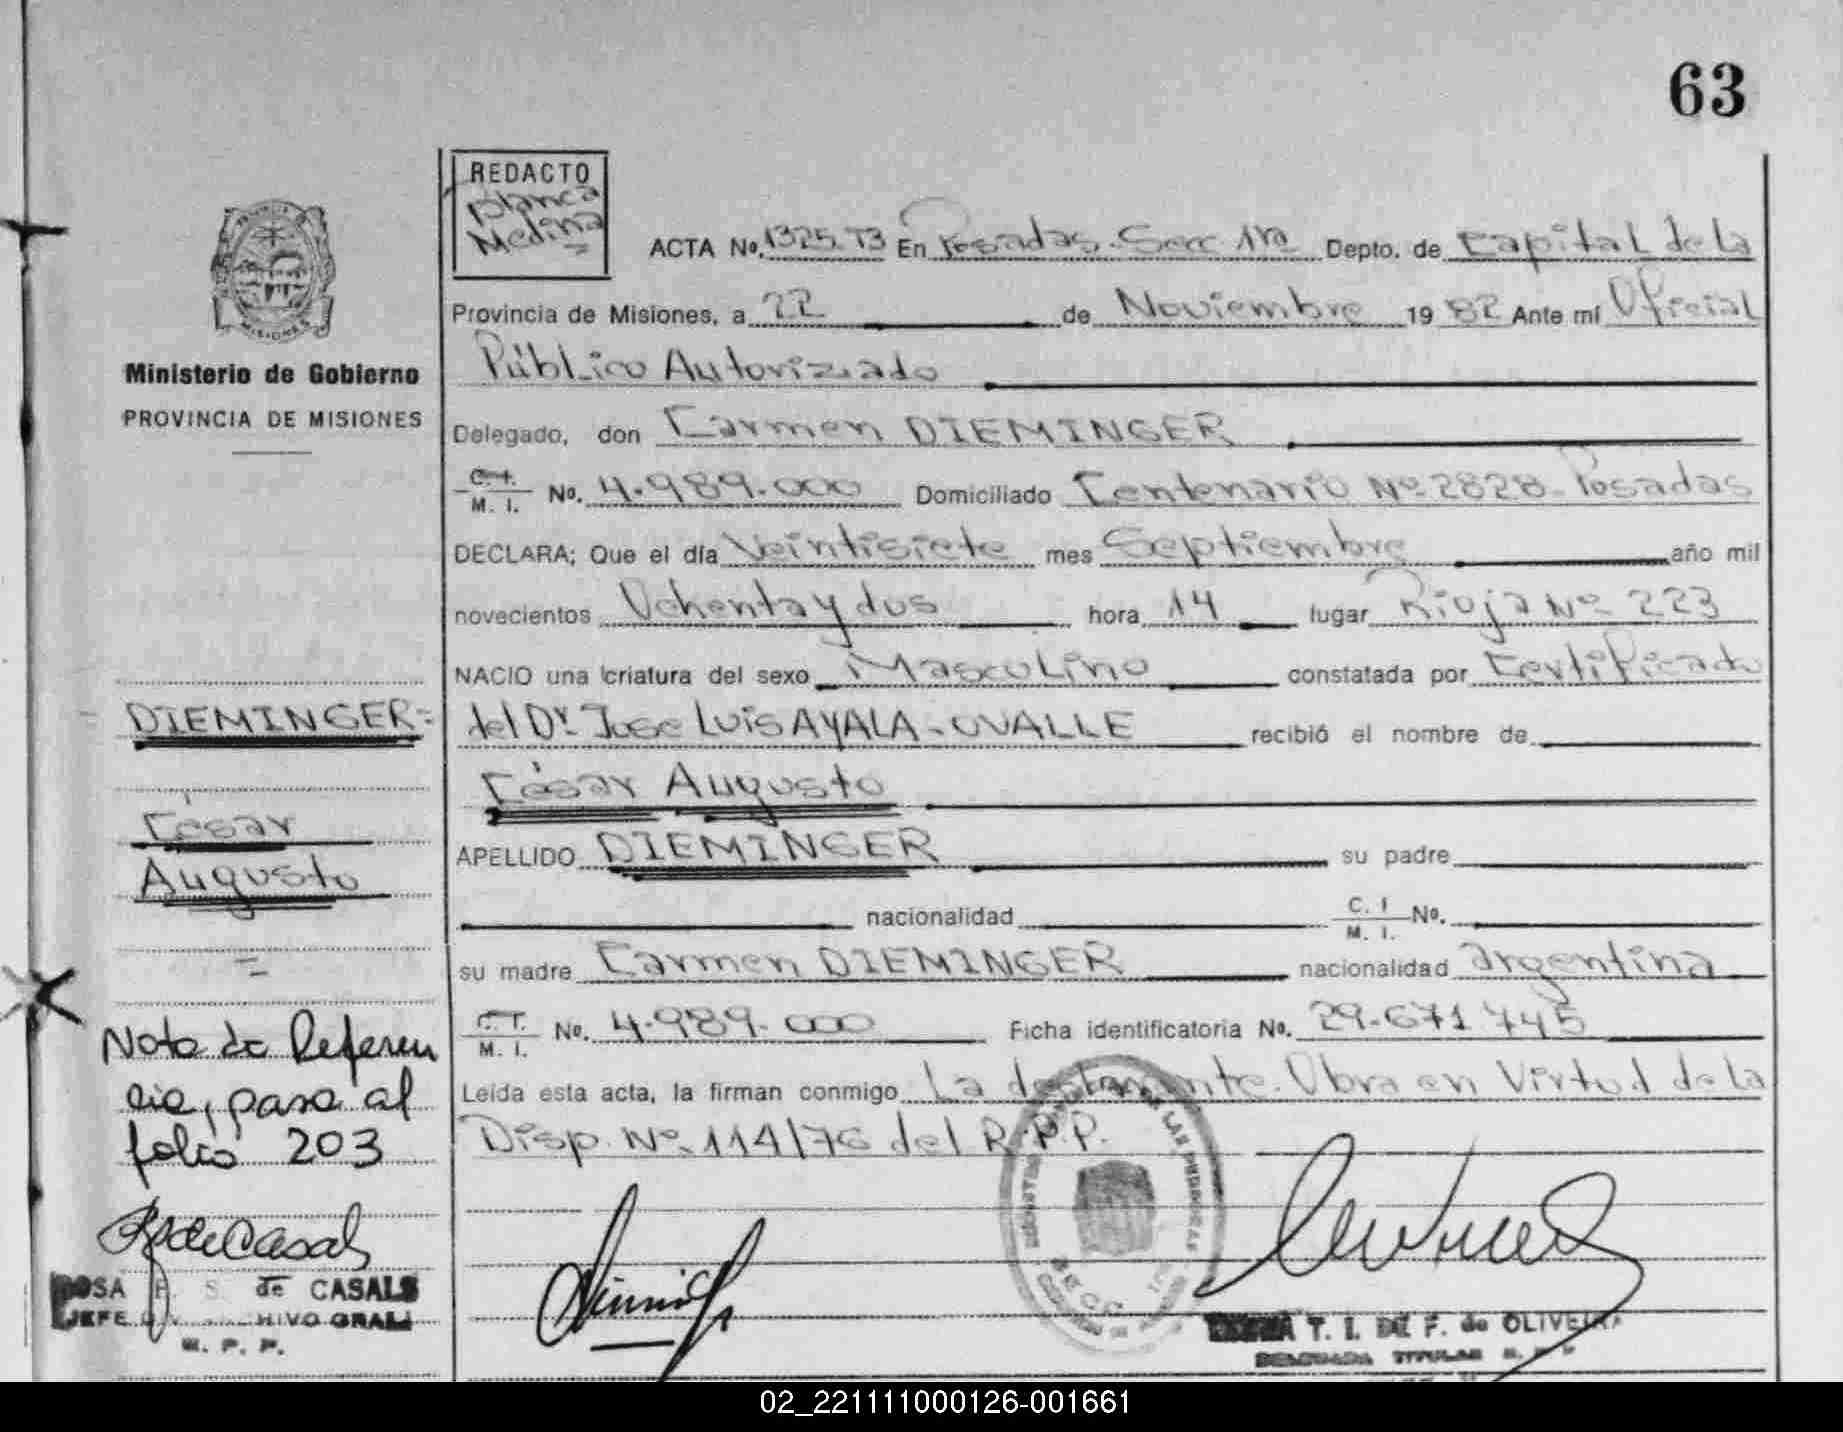 63
REDACTO
blanca
Medina
ACTA No. 1325 T3 En Posadas. Secc 1ra Depto. de Capital de la
Provincia de Misiones, a 22 de Noviembre 1982 Ante mí Oficial
Público Autorizado
Delegado, don Carmen DIEMINGER
C. I.
M. I. No. 4.989.000 Domiciliado Centenario Nº 2828 Posadas
DECLARA; Que el día Veintisiete mes Septiembre año mil
novecientos Ochenta y dos hora 14 lugar Rioja Nº 223
NACIO una criatura del sexo Masculino constatada por Certificado
del Dr. Jose Luis AYALA-OVALLE recibió el nombre de
César Augusto
APELLIDO DIEMINGER su padre
nacionalidad C. I. M. I. No.
su madre Carmen DIEMINGER nacionalidad argentina
C. I.
M. I. No. 4.989.000 Ficha identificatoria No. 29.671 745
Leída esta acta, la firman conmigo La declarante. Obra en Virtud de la
Disp. Nº 114/76 del R.P.P.
MISIONES
Ministerio de Gobierno
PROVINCIA DE MISIONES
DIEMINGER=
César
Augusto
Nota de Referen
cia, pase al
folio 203
R de Casals
ROSA F. S. de CASALS
JEFE ARCHIVO GRAL
R. P. P.
T. I. DE F. de OLIVEIRA
DELEGADA TITULAR R. P. P.
02_221111000126-001661